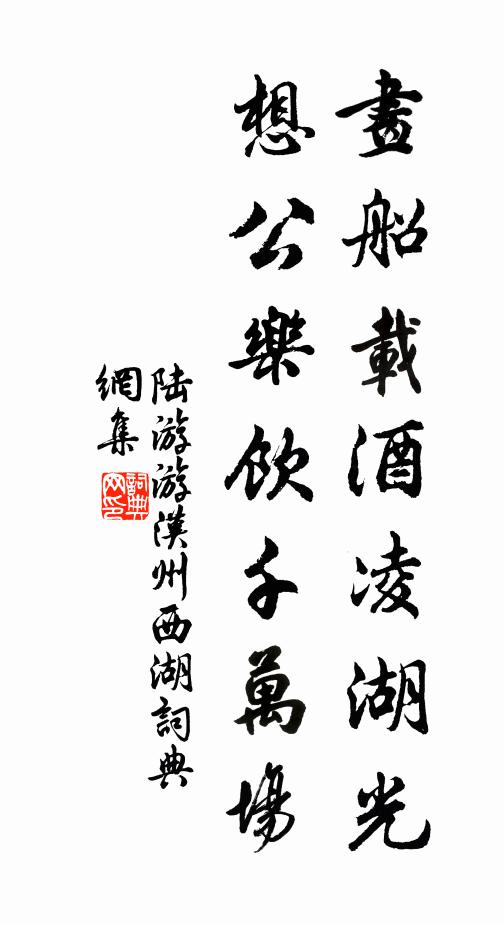 畫船載酒凌湖光
想公樂飲千萬場
陸游游漢州西湖詞典
網集
詞典网印